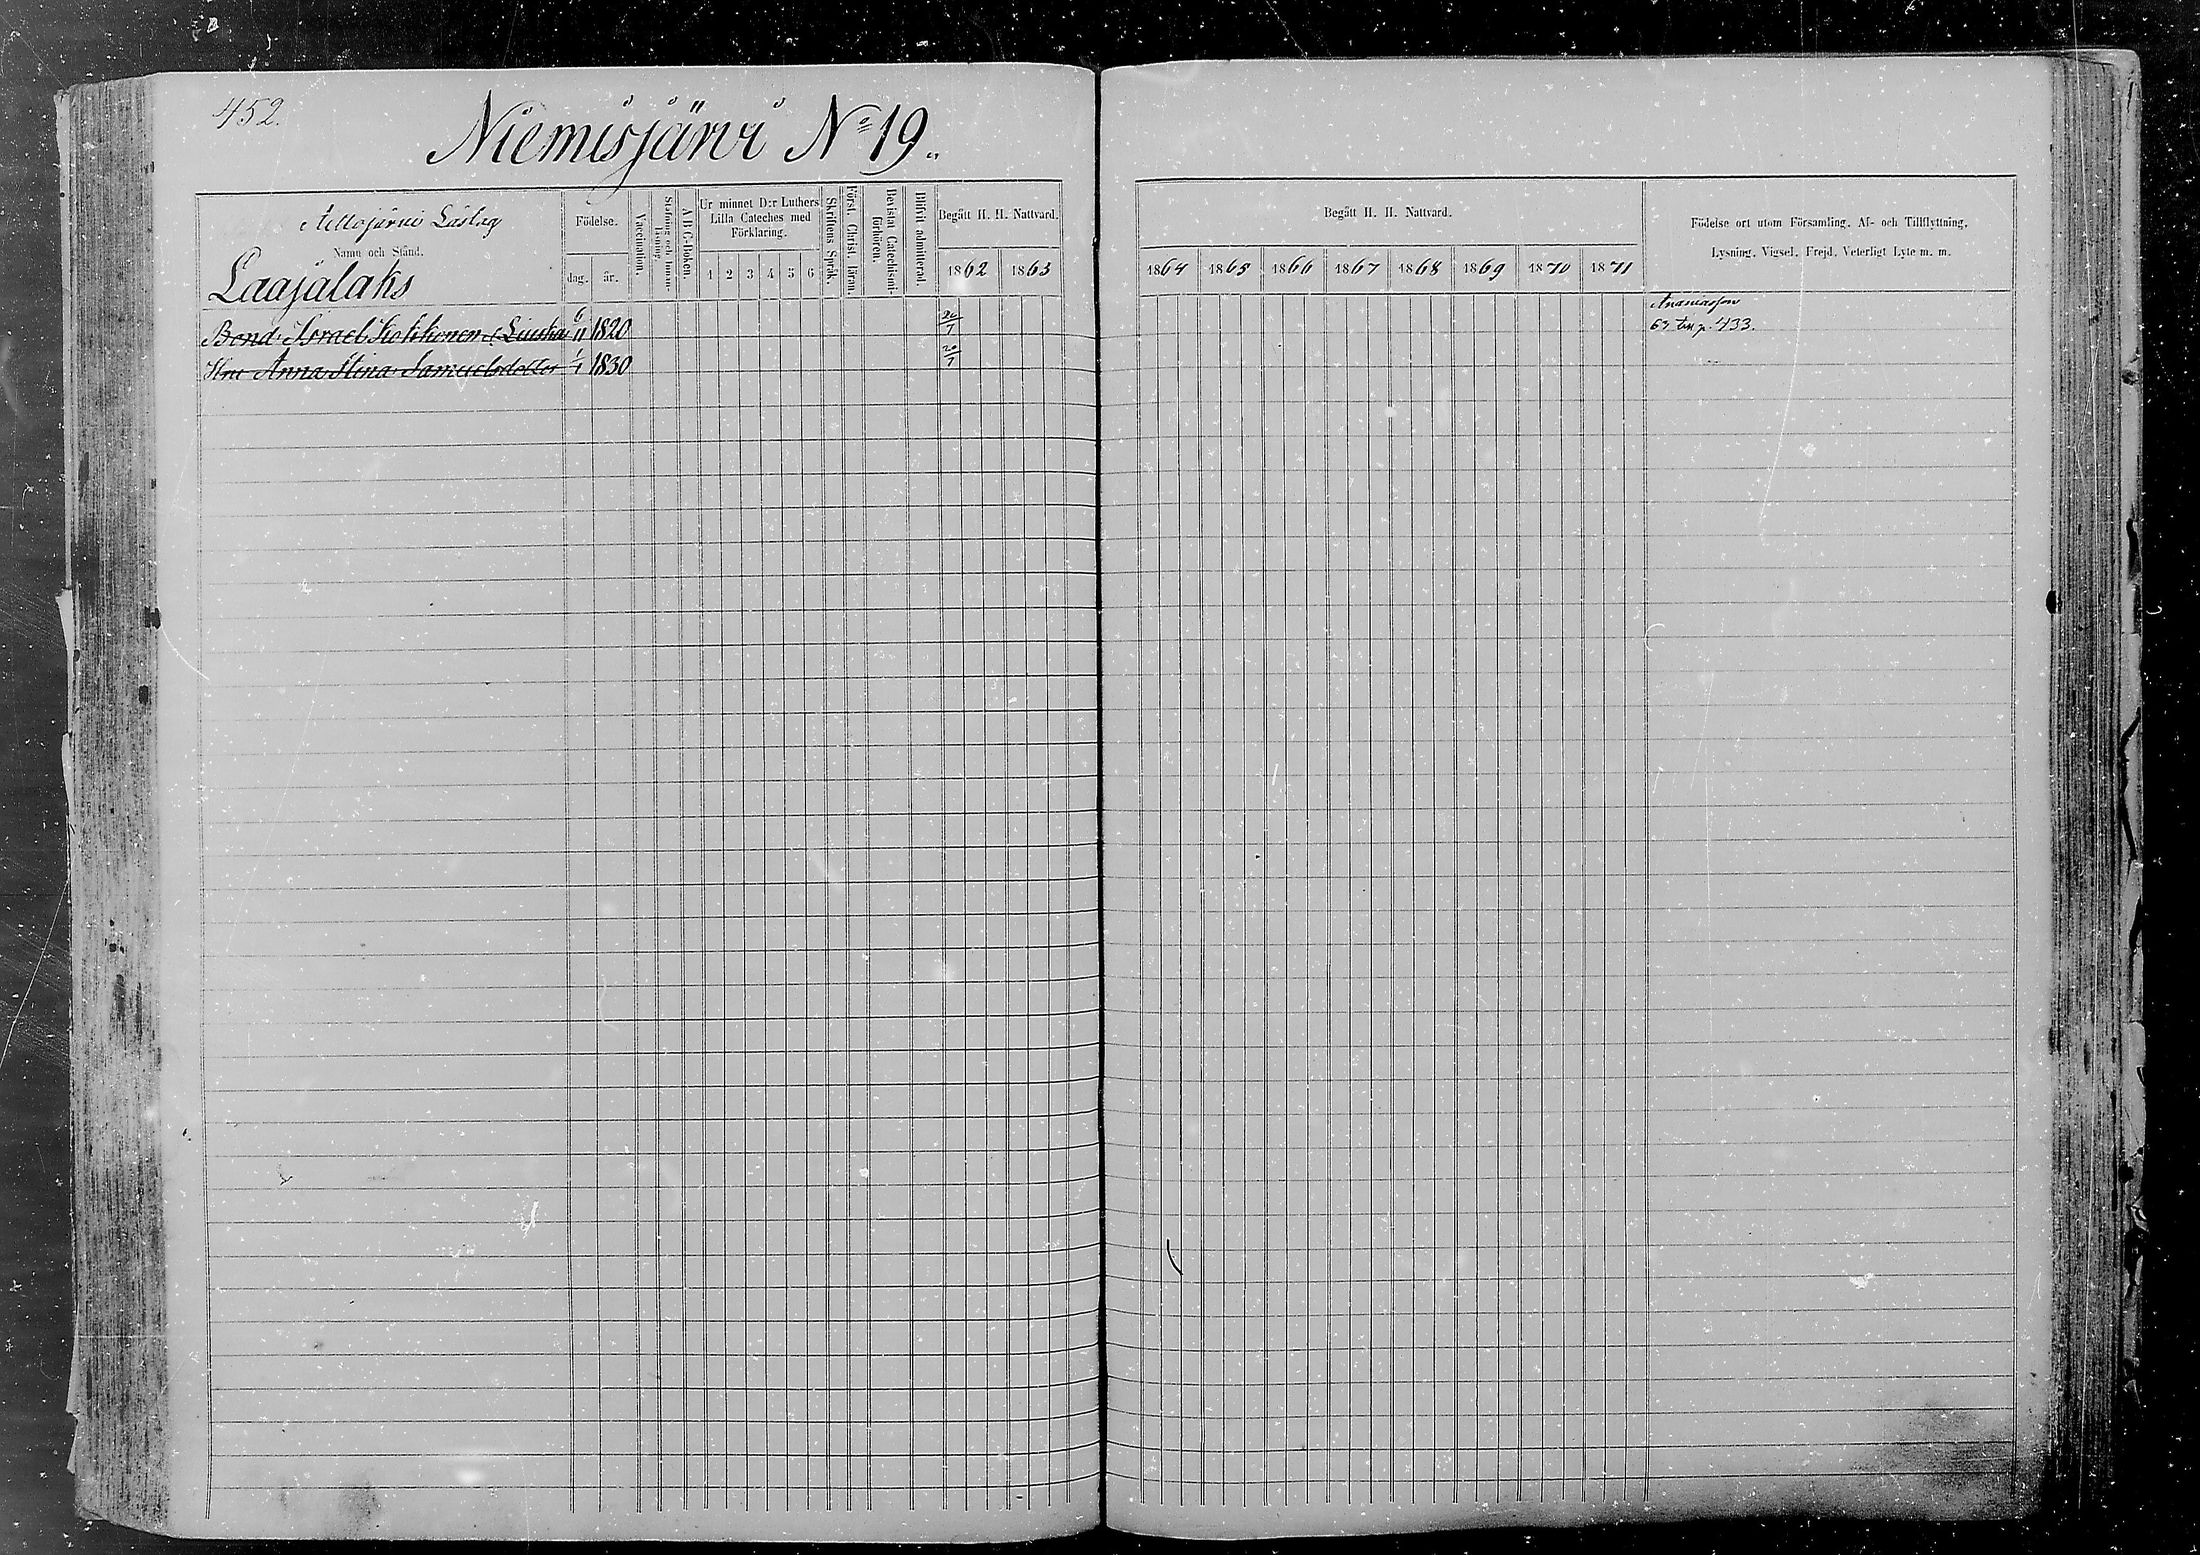 452.
Niemisjärvi No 19.
Läslag
Namn och Stånd.
Laajalaks
Födelse.
dag. år.
Vaccination.
Stafning och innan-läsning.
A B C-Boken.
Ur minnet D:r Luthers Lilla Cateches med Förklaring.
1 2 3 4 5 6
Skriftens Språk.
Först. Christ. läran
Bevistat Catechismi-förhören.
Blifvit admitterad.
Begått H. H. Nattvard.
1862 1863
Begått H. H. Nattvard.
1864 1865 1866 1867 1868 1869 1870 1871
Födelse ort utom Församling, Af- och Tillflyttning,
Lysning, Vigsel, Frejd, Veterligt Lyte m. m.
Ananiasson
Bond. Israel Kokkonen 6/11 1820 20/7 63 p. 433.
Hru Anna Stina Samuelsdotter 1/1 1830 20/7